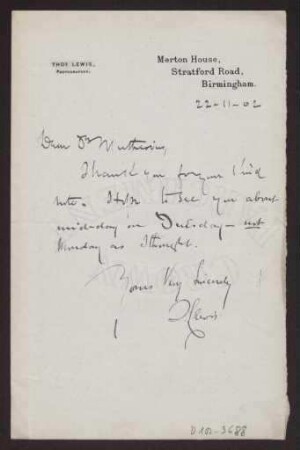 THOS LEWIS,
PHOTOGRAPHER.
Merton House,
Stratford Road,
Birmingham.
22-11-02
Dear Dr
Thank you for your kind
note. Hope to see you about
mid-day on Tuesday - not
Monday as I thought.
Yours Very Sincerely
T Lewis